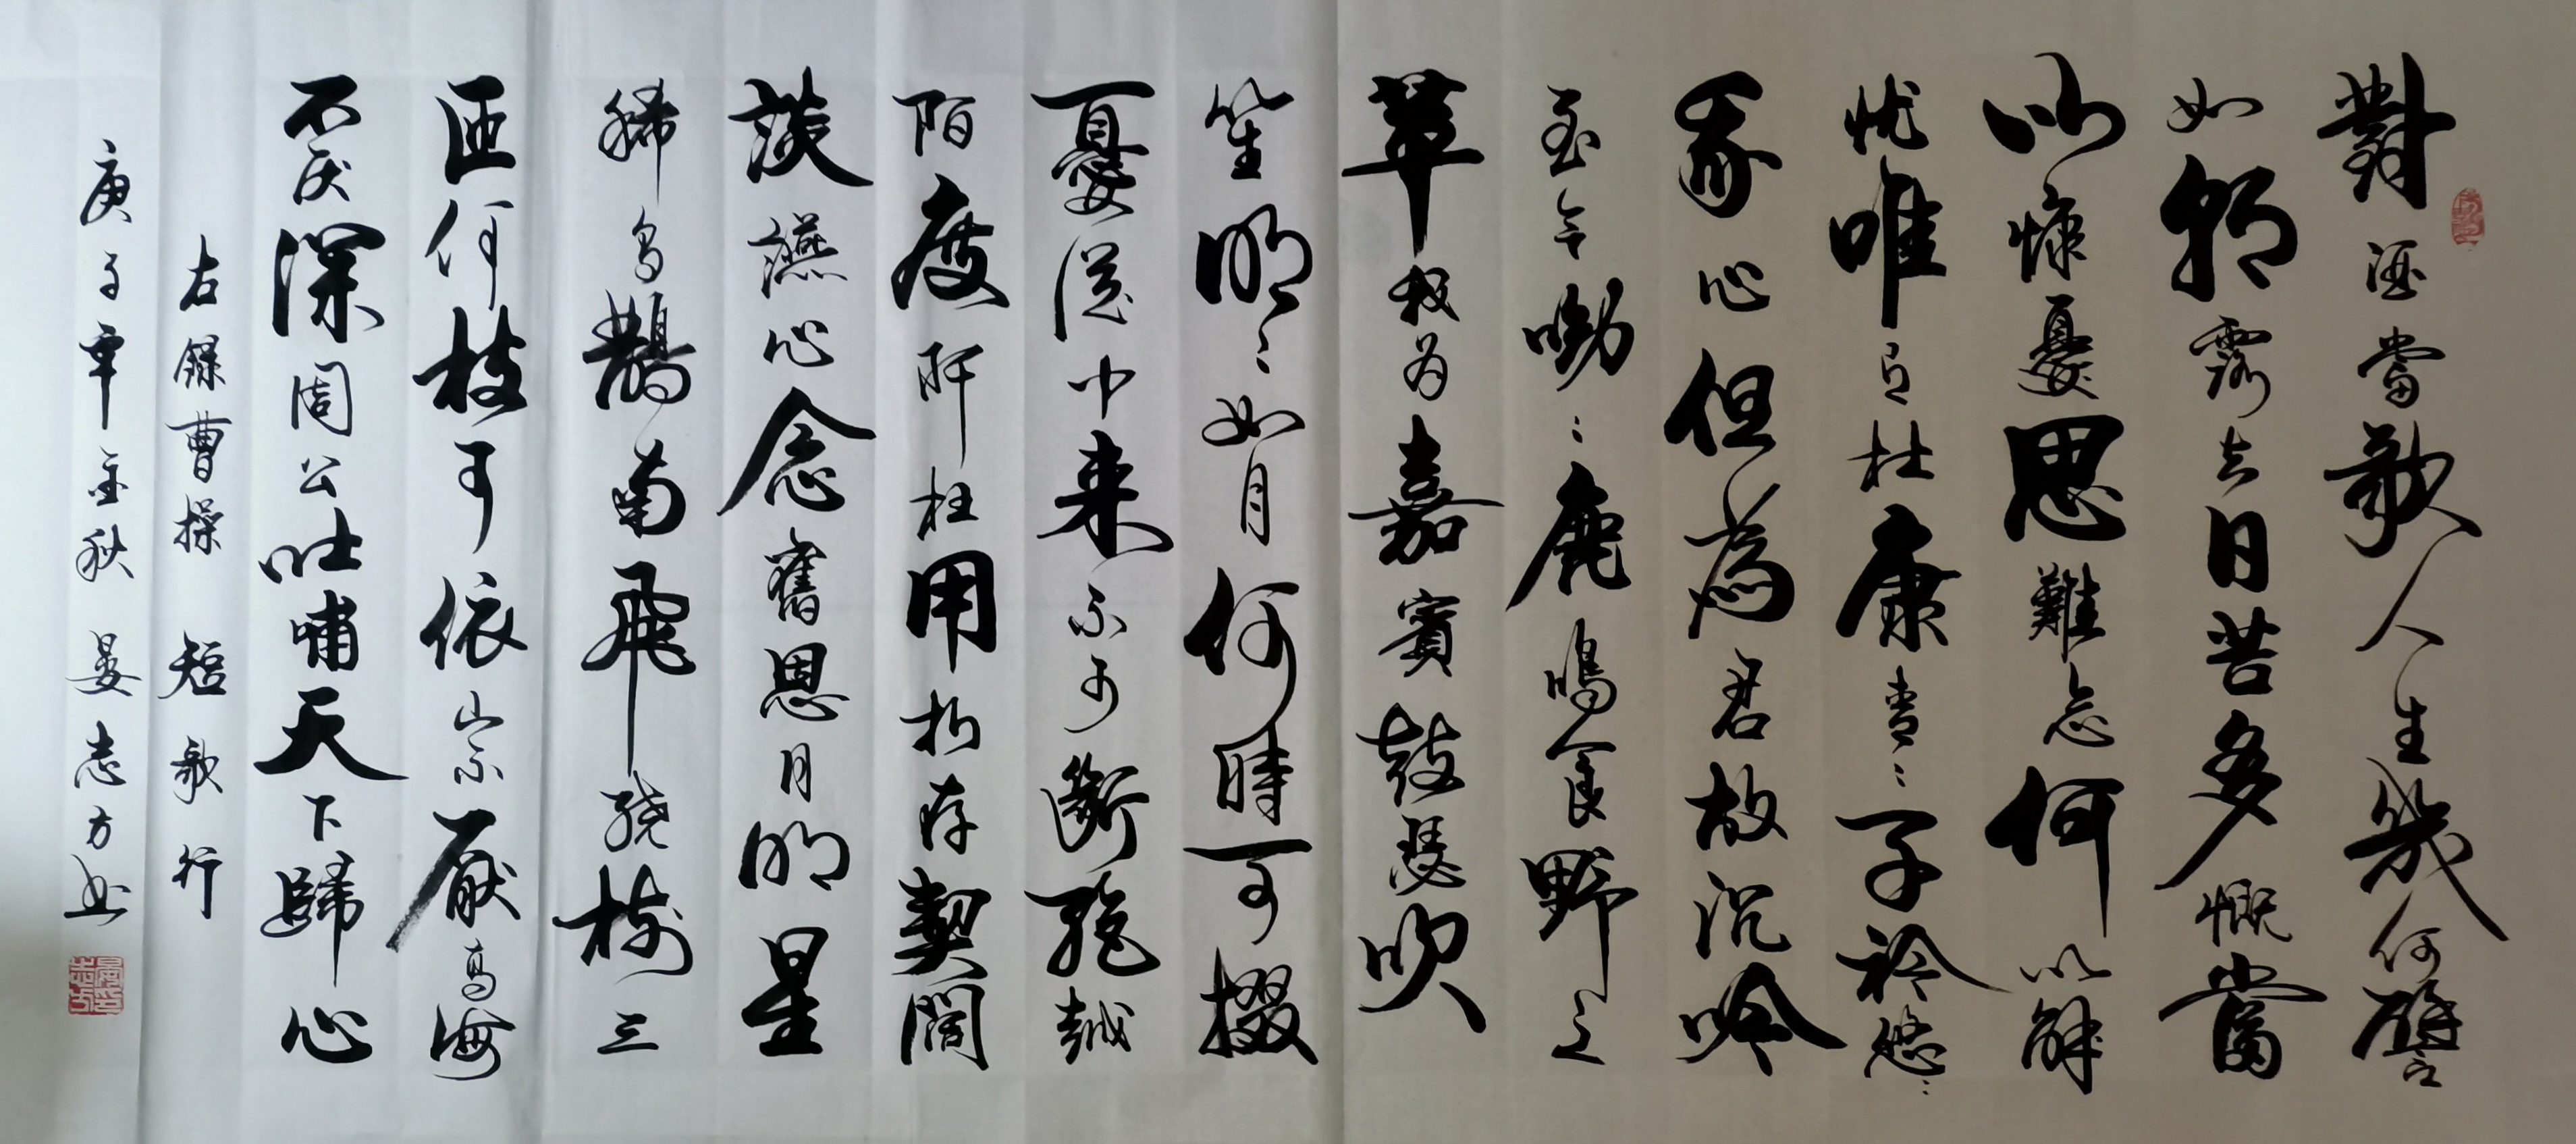 對酒當歌人生幾何譬
如朝露去日苦多慨當
以慷憂思難忘何以解
忧唯有杜康青〻子衿悠〻
我心但為君故沉吟
至今呦〻鹿鳴食野之
苹我为嘉賓鼓瑟吹
笙明〻如月何時可掇
憂從中来不可斷絕越
陌度阡枉用相存契闊
談讌心念舊恩月明星
稀烏鵲南飛繞樹三
匝何枝可依山不厭高海
不厌深周公吐哺天下歸心
右錄曹操 短歌行
庚子年金秋 晏志方书